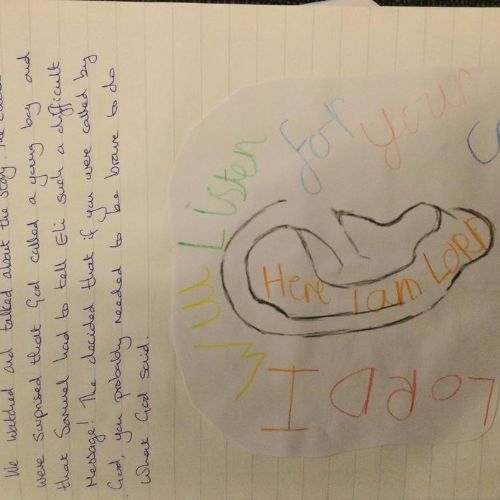 We watched and talked about the story. The
were surprised that God called a young boy and
that Samuel had to tell Eli such a difficult
Message! The decided that if you were called by
God, you probably needed to be brave to do
what God said.
LORD I
will Listen
for your
Here I am LORD